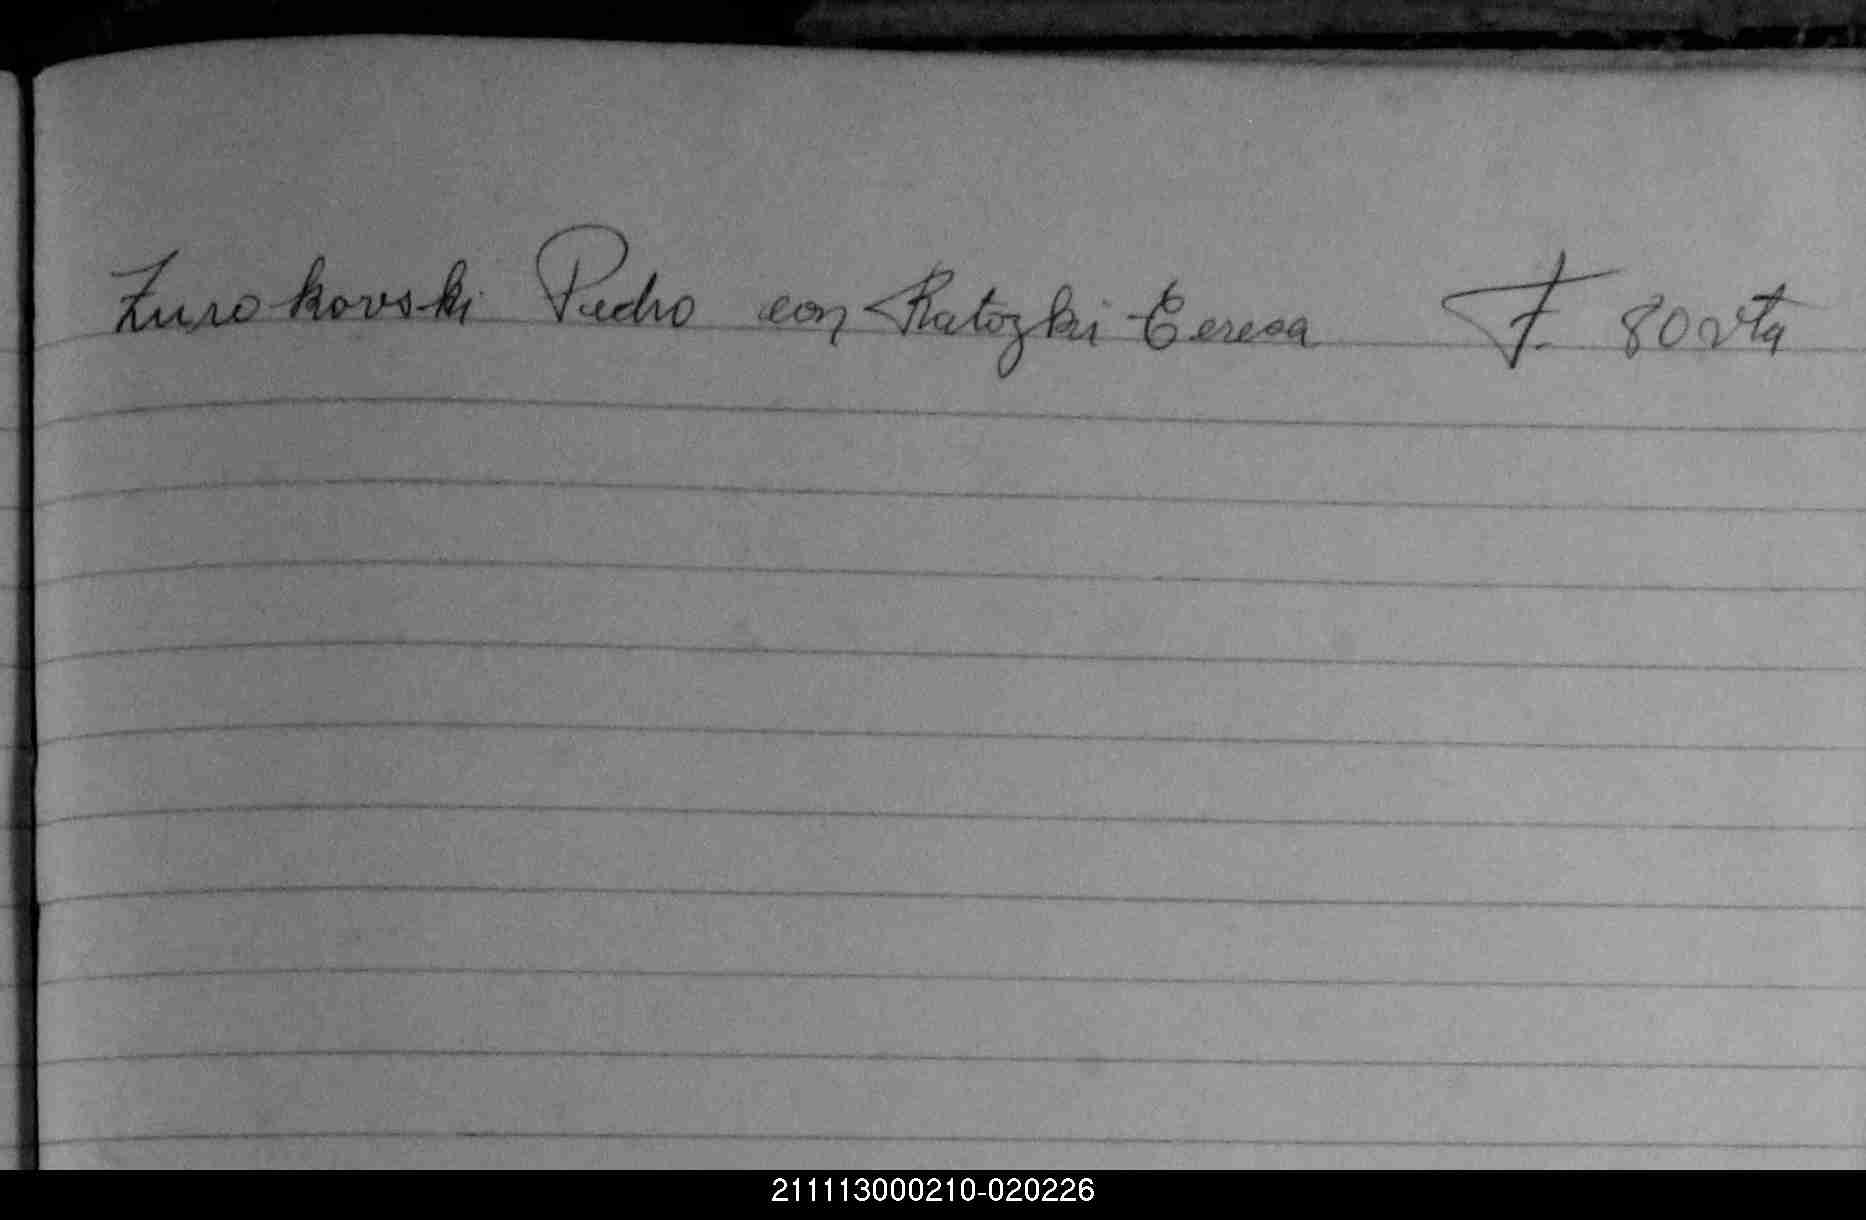 Zurokovski Pedro con Ratozki Teresa F. 80 vta
211113000210-020226